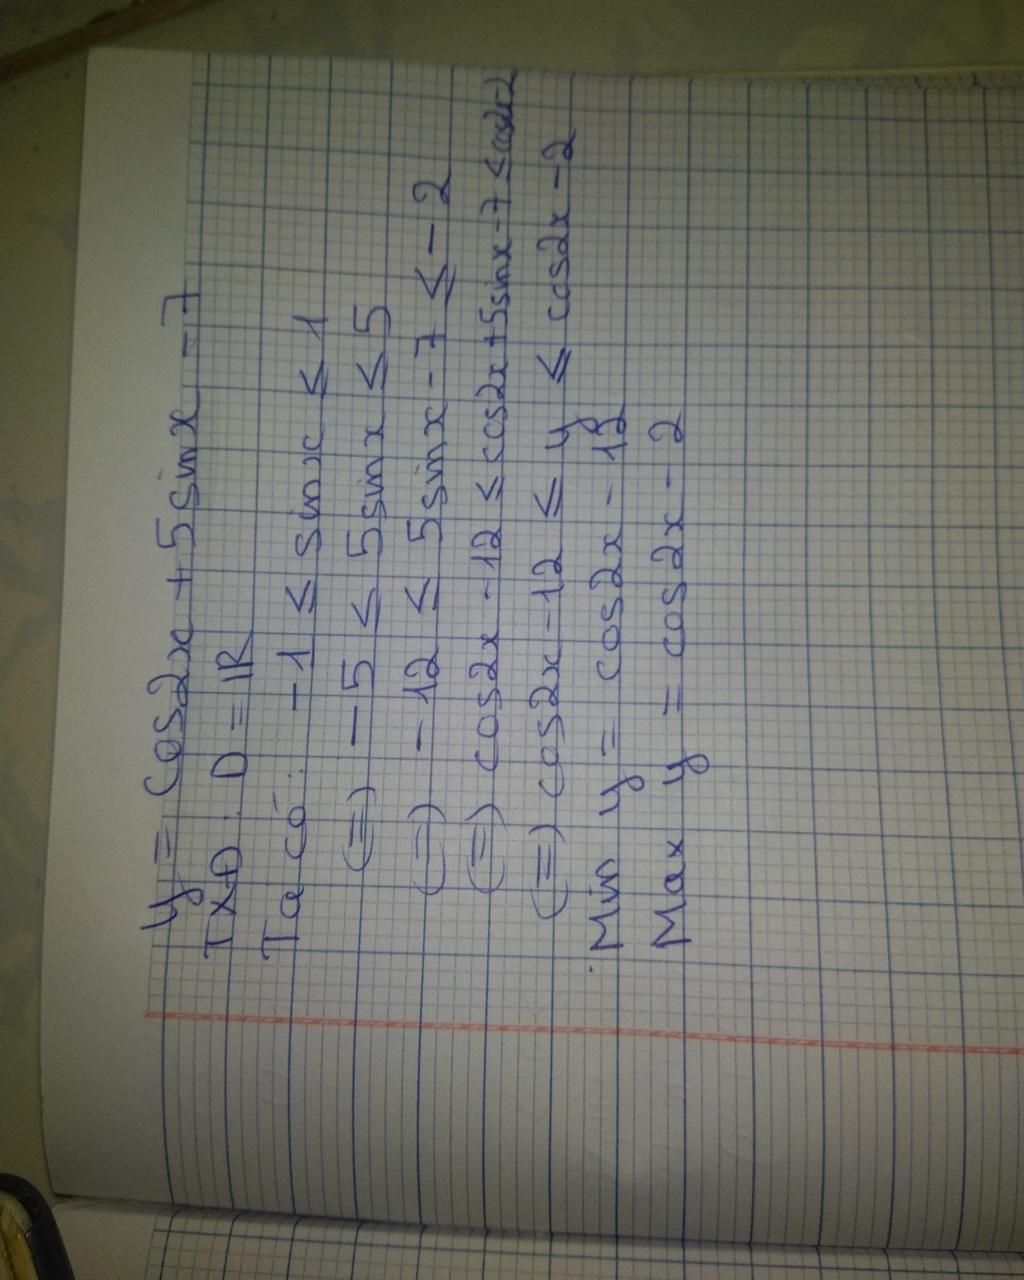 y = cos2x + 5sinx - 7
TXĐ: D = ℝ
Ta có: -1 ≤ sinx ≤ 1
(=) -5 ≤ 5sinx ≤ 5
(=) -12 ≤ 5sinx - 7 ≤ -2
(=) cos2x - 12 ≤ cos2x + 5sinx - 7 ≤ cos2x - 2
(=) cos2x - 12 ≤ y ≤ cos2x - 2
Min y = cos2x - 12
Max y = cos2x - 2